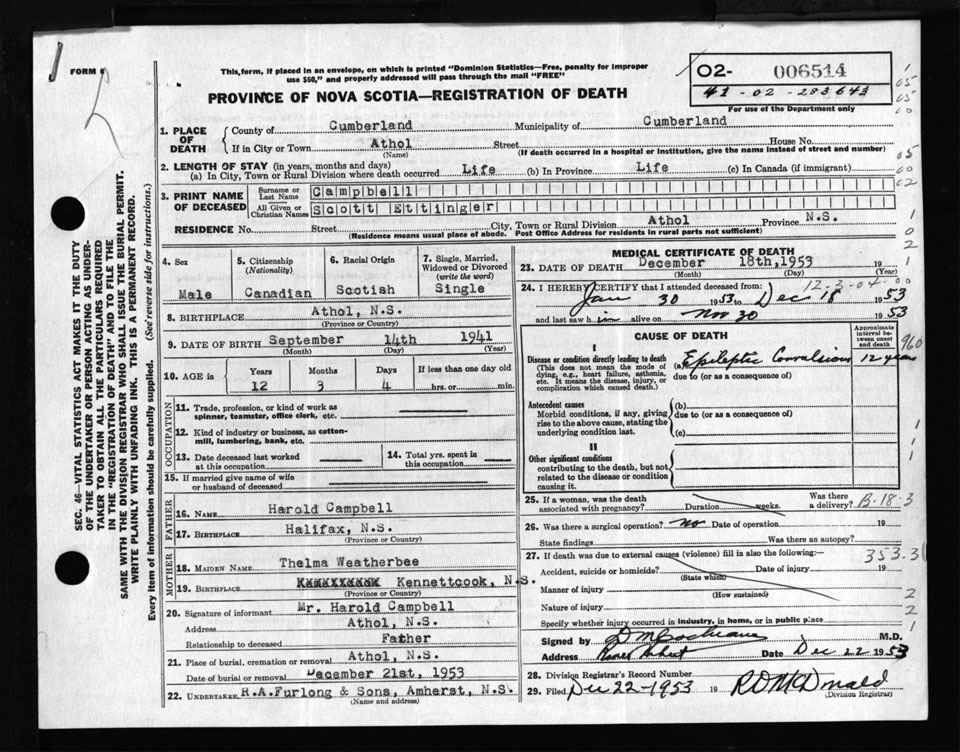 FORM 6
This form, if placed in an envelope, on which is printed "Dominion Statistics—Free, penalty for improper
use $50," and properly addressed will pass through the mail "FREE"
PROVINCE OF NOVA SCOTIA—REGISTRATION OF DEATH
02- 006514
41-02-283643
For use of the Department only
1. PLACE OF DEATH
County of Cumberland Municipality of Cumberland
If in City or Town Athol Street House No.
(Name) (If death occurred in a hospital or institution, give the name instead of street and number)
2. LENGTH OF STAY (in years, months and days)
(a) In City, Town or Rural Division where death occurred Life (b) In Province Life (c) In Canada (if immigrant)
3. PRINT NAME OF DECEASED
Surname or Last Name Campbell
All Given or Christian Names Scott Ettinger
RESIDENCE No. Street City, Town or Rural Division Athol Province N.S.
(Residence means usual place of abode. Post Office Address for residents in rural parts not sufficient)
4. Sex
Male
5. Citizenship
(Nationality)
Canadian
6. Racial Origin
Scotish
7. Single, Married,
Widowed or Divorced
(write the word)
Single
8. BIRTHPLACE Athol, N.S.
(Province or Country)
9. DATE OF BIRTH September 14th 1941
(Month) (Day) (Year)
10. AGE in
Years Months Days If less than one day old
12 3 4 hrs. or min.
OCCUPATION
11. Trade, profession, or kind of work as
spinner, teamster, office clerk, etc.
12. Kind of industry or business, as cotton-
mill, lumbering, bank, etc.
13. Date deceased last worked
at this occupation
14. Total yrs. spent in
this occupation
15. If married give name of wife
or husband of deceased
FATHER
16. NAME Harold Campbell
17. BIRTHPLACE Halifax, N.S.
(Province or Country)
MOTHER
18. MAIDEN NAME Thelma Weatherbee
19. BIRTHPLACE Kennettcook, N.S.
(Province or Country)
20. Signature of informant Mr. Harold Campbell
Address Athol, N.S.
Relationship to deceased Father
21. Place of burial, cremation or removal Athol, N.S.
Date of burial or removal December 21st, 1953
22. UNDERTAKER R.A.Furlong & Sons, Amherst, N.S.
(Name and address)
MEDICAL CERTIFICATE OF DEATH
23. DATE OF DEATH December 18th,1953 19
(Month) (Day) (Year)
12-3-04-00
24. I HEREBY CERTIFY that I attended deceased from:
Jan 30 1953 to Dec 18 1953
and last saw him alive on Nov 30 1953
CAUSE OF DEATH
Approximate
interval be-
tween onset
and death
960
I
Disease or condition directly leading to death
(This does not mean the mode of
dying, e.g., heart failure, asthenia,
etc. It means the disease, injury, or
complication which caused death.)
(a) Epileptic Convulsions 12 years
due to (or as a consequence of)
Antecedent causes
Morbid conditions, if any, giving
rise to the above cause, stating the
underlying condition last.
(b)
due to (or as a consequence of)
(c)
II
Other significant conditions
contributing to the death, but not
related to the disease or condition
causing it.
25. If a woman, was the death
associated with pregnancy? Duration weeks. Was there
a delivery? B-18-3
26. Was there a surgical operation? no Date of operation 19
State findings Was there an autopsy?
27. If death was due to external causes (violence) fill in also the following:— 353.3
Accident, suicide or homicide? Date of injury 19
(State which)
Manner of injury
(How sustained)
Nature of injury
Specify whether injury occurred in industry, in home, or in public place
Signed by D M Cochrane M.D.
Address Date Dec 22 1953
28. Division Registrar's Record Number
29. Filed Dec 22-1953 19 R D McDonald
(Division Registrar)
SEC. 46—VITAL STATISTICS ACT MAKES IT THE DUTY
OF THE UNDERTAKER OR PERSON ACTING AS UNDER-
TAKER TO OBTAIN ALL THE PARTICULARS REQUIRED
IN THE "REGISTRATION OF DEATH" AND TO FILE THE
SAME WITH THE DIVISION REGISTRAR WHO SHALL ISSUE THE BURIAL PERMIT.
WRITE PLAINLY WITH UNFADING INK. THIS IS A PERMANENT RECORD.
Every item of information should be carefully supplied. (See reverse side for instructions.)